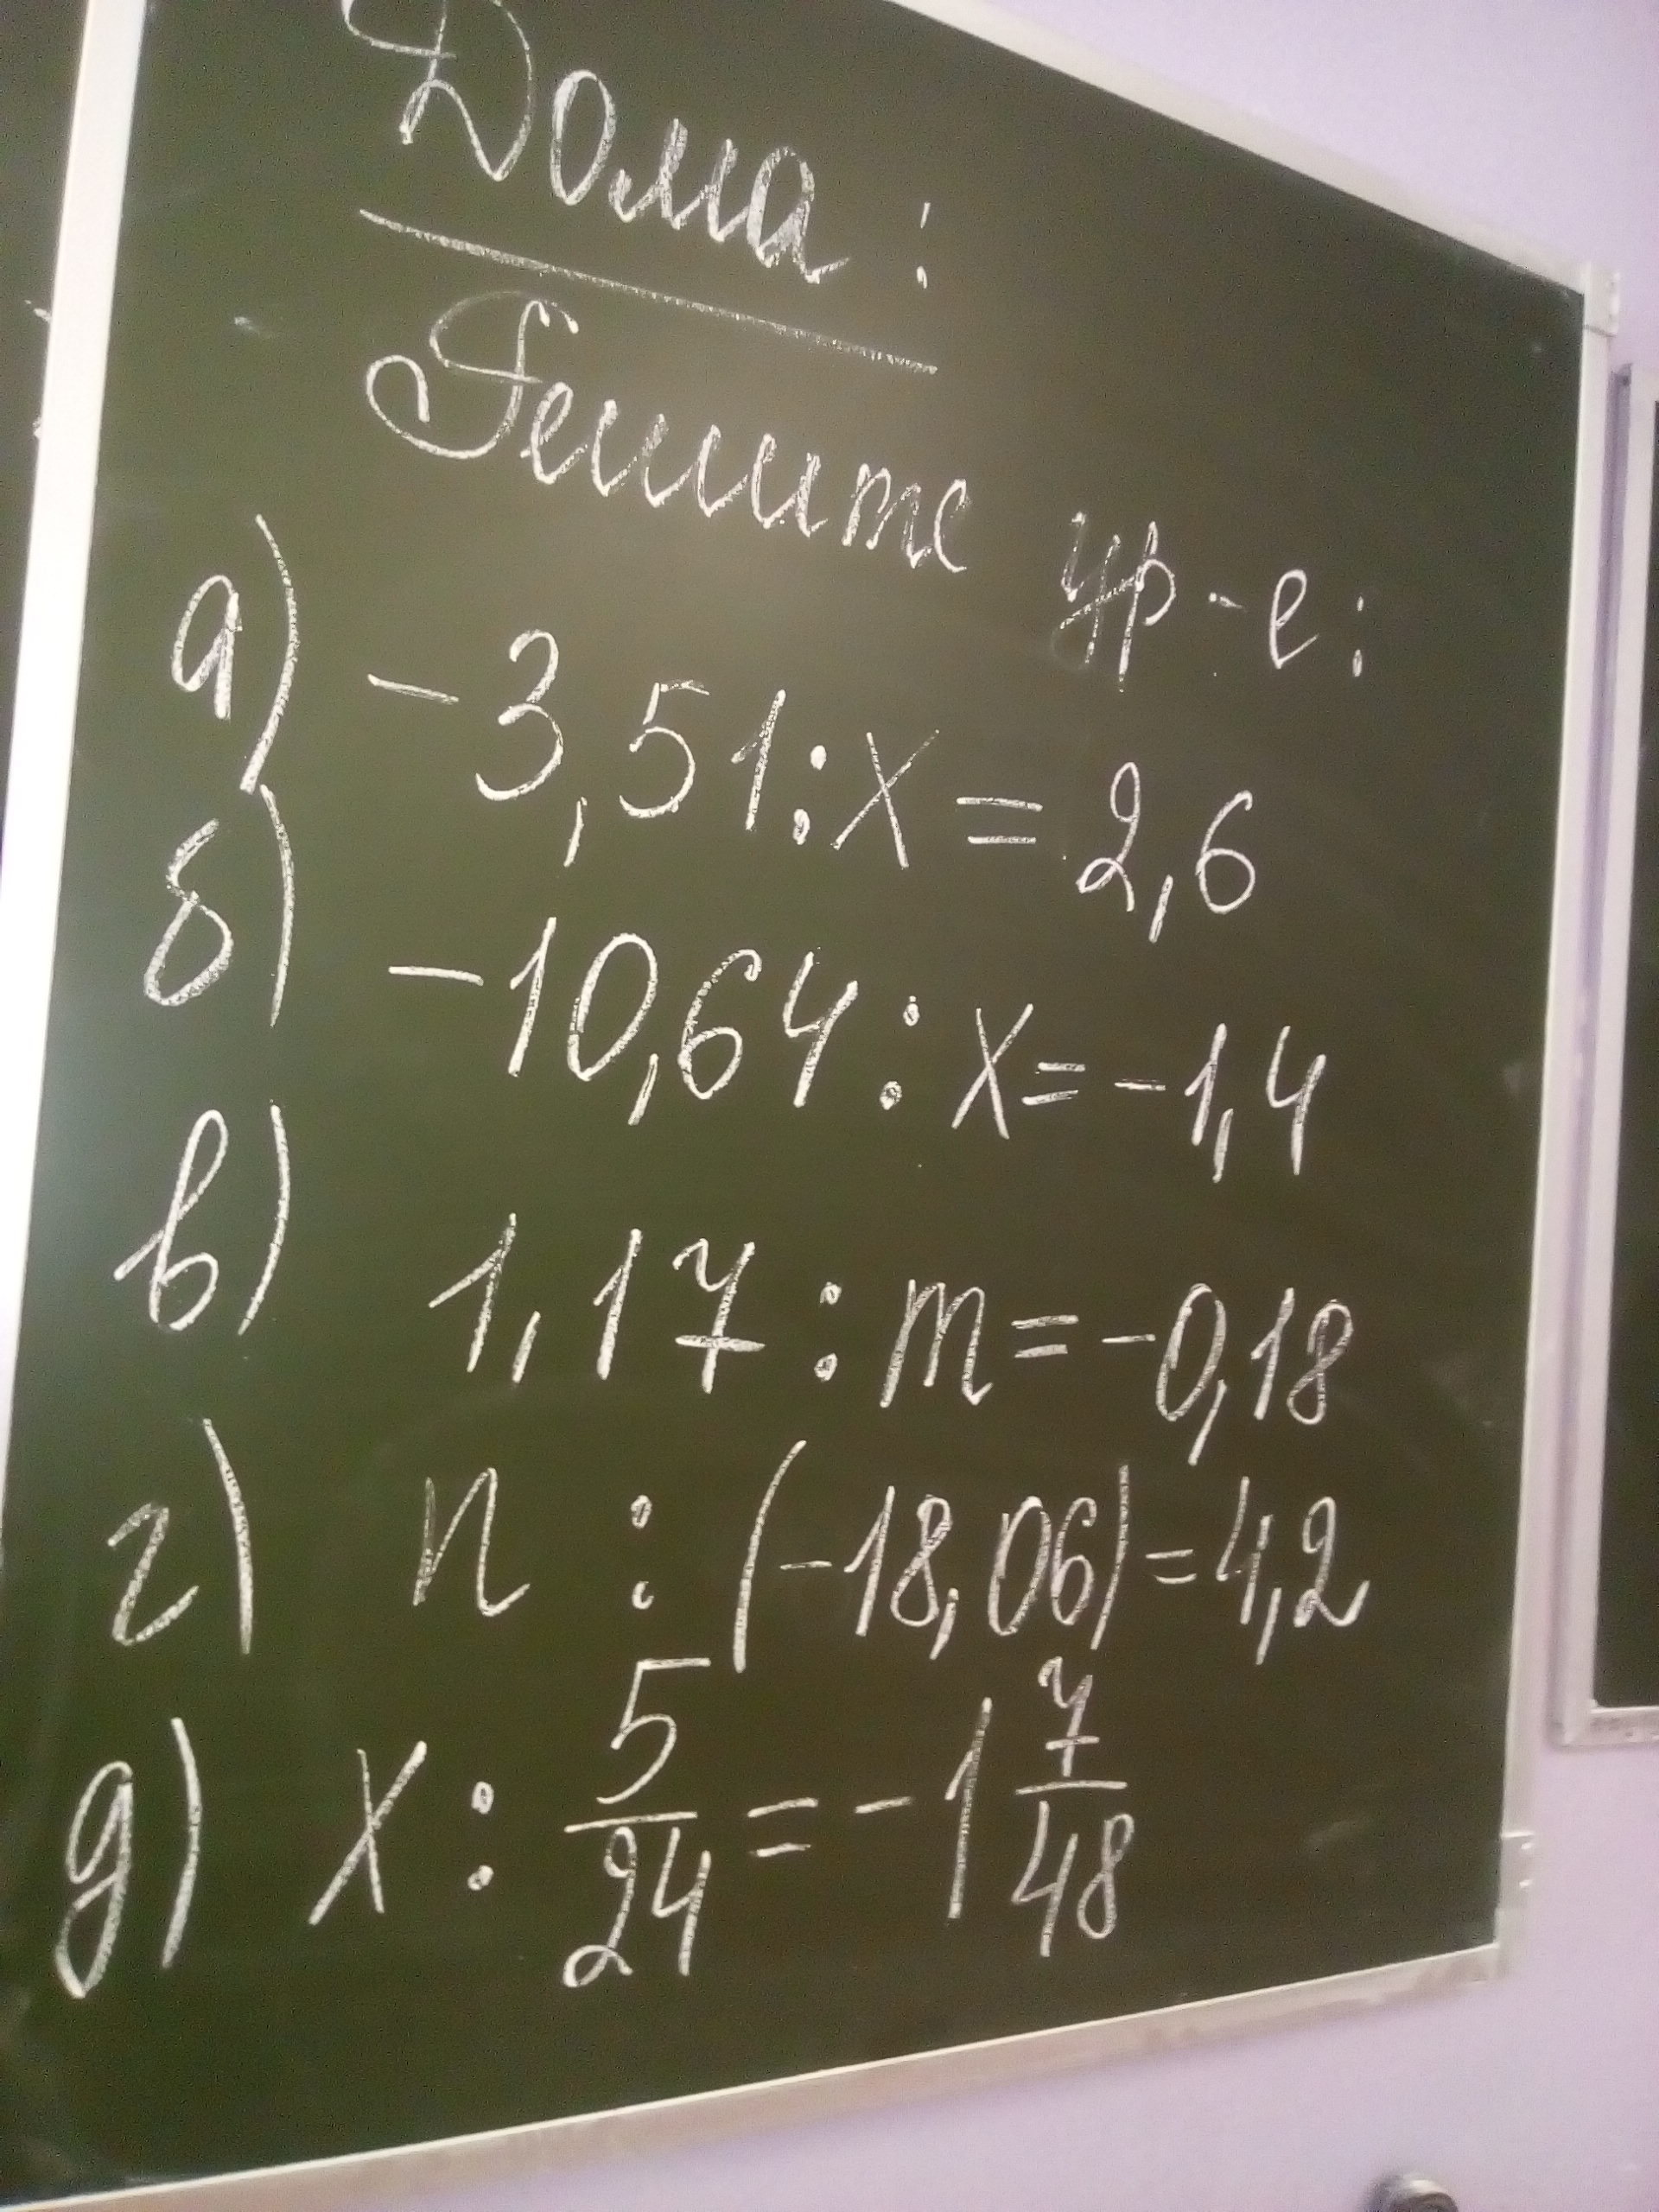 Дома:
Решите ур-е:
а) -3,51:x = 2,6
б) -10,64 : x = -1,4
в) 1,17 : m = -0,18
г) n : (-18,06) = 4,2
д) x : 5/24 = -1 7/48